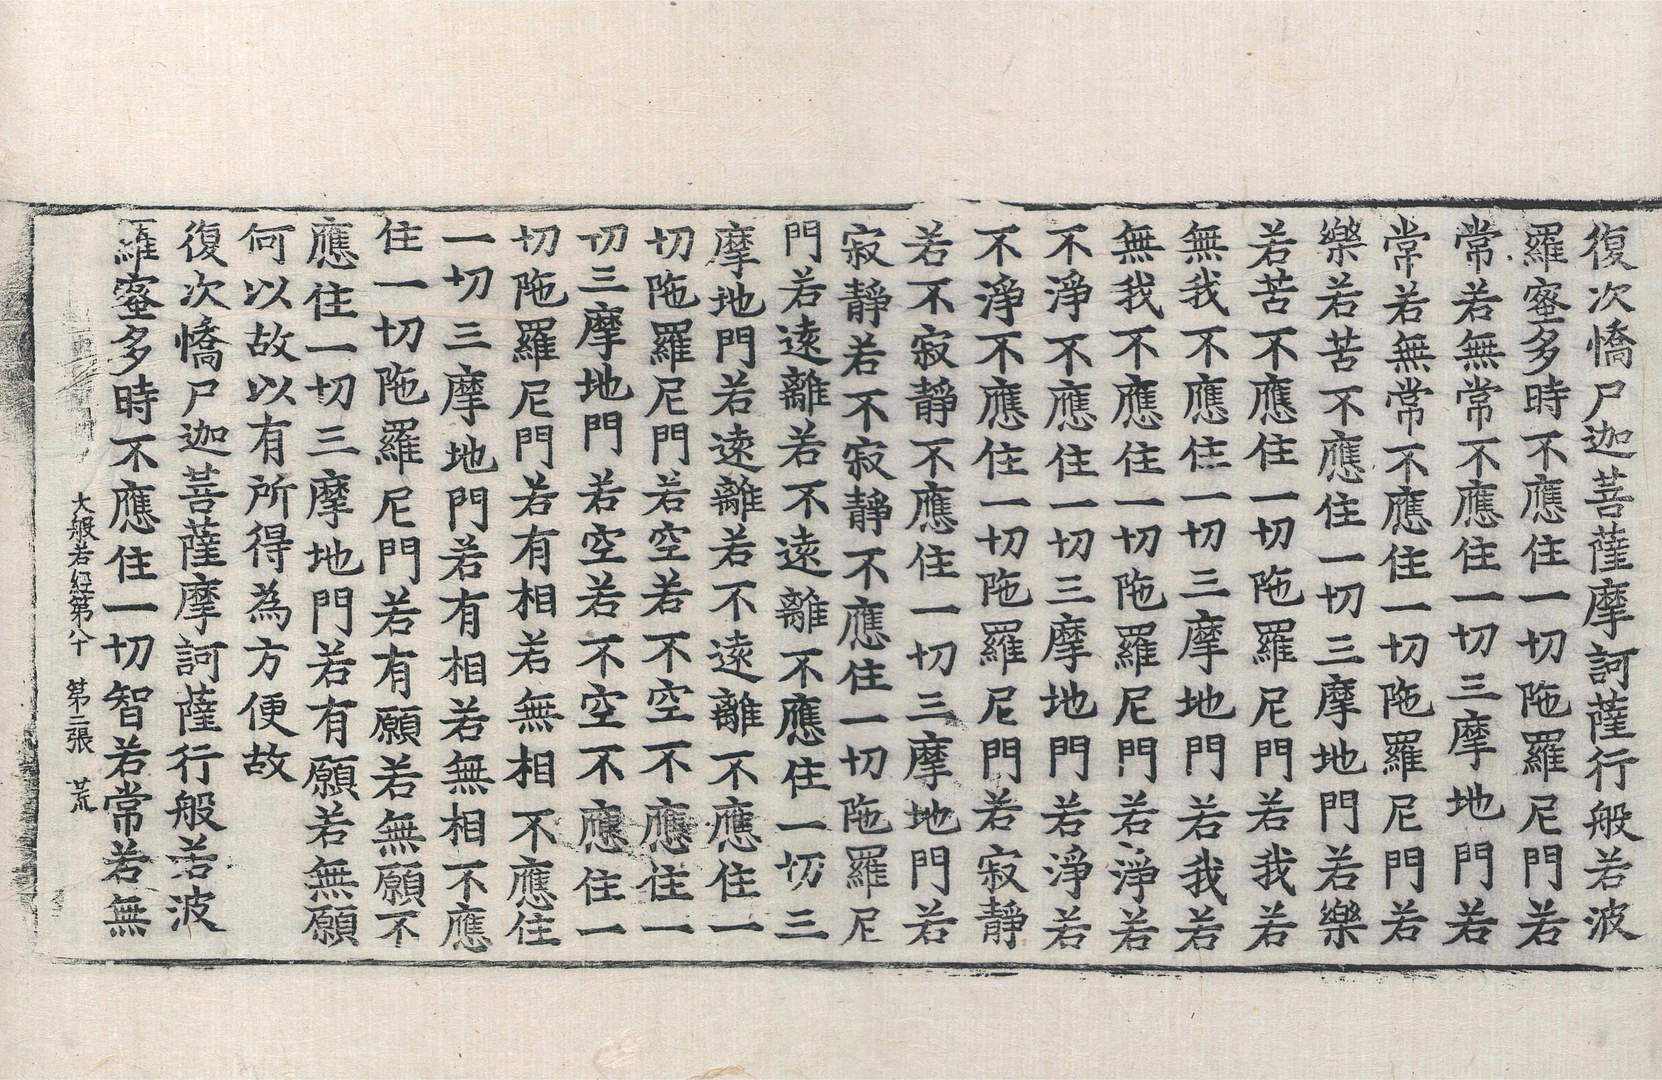 復次憍尸迦菩薩摩訶薩行般若波
羅蜜多時不應住一切陁羅尼門若
常若無常不應住一切三摩地門若
常若無常不應住一切陁羅尼門若
樂若苦不應住一切三摩地門若樂
若苦不應住一切陁羅尼門若我若
無我不應住一切三摩地門若我若
無我不應住一切陁羅尼門若淨若
不淨不應住一切三摩地門若淨若
不淨不應住一切陁羅尼門若寂靜
若不寂靜不應住一切三摩地門若
寂靜若不寂靜不應住一切陁羅尼
門若遠離若不遠離不應住一切三
摩地門若遠離若不遠離不應住一
切陁羅尼門若空若不空不應住一
切三摩地門若空若不空不應住一
切陁羅尼門若有相若無相不應住
一切三摩地門若有相若無相不應
住一切陁羅尼門若有願若無願不
應住一切三摩地門若有願若無願
何以故以有所得為方便故
復次憍尸迦菩薩摩訶薩行般若波
羅蜜多時不應住一切智若常若無
大般若經第八十 第二張 荒